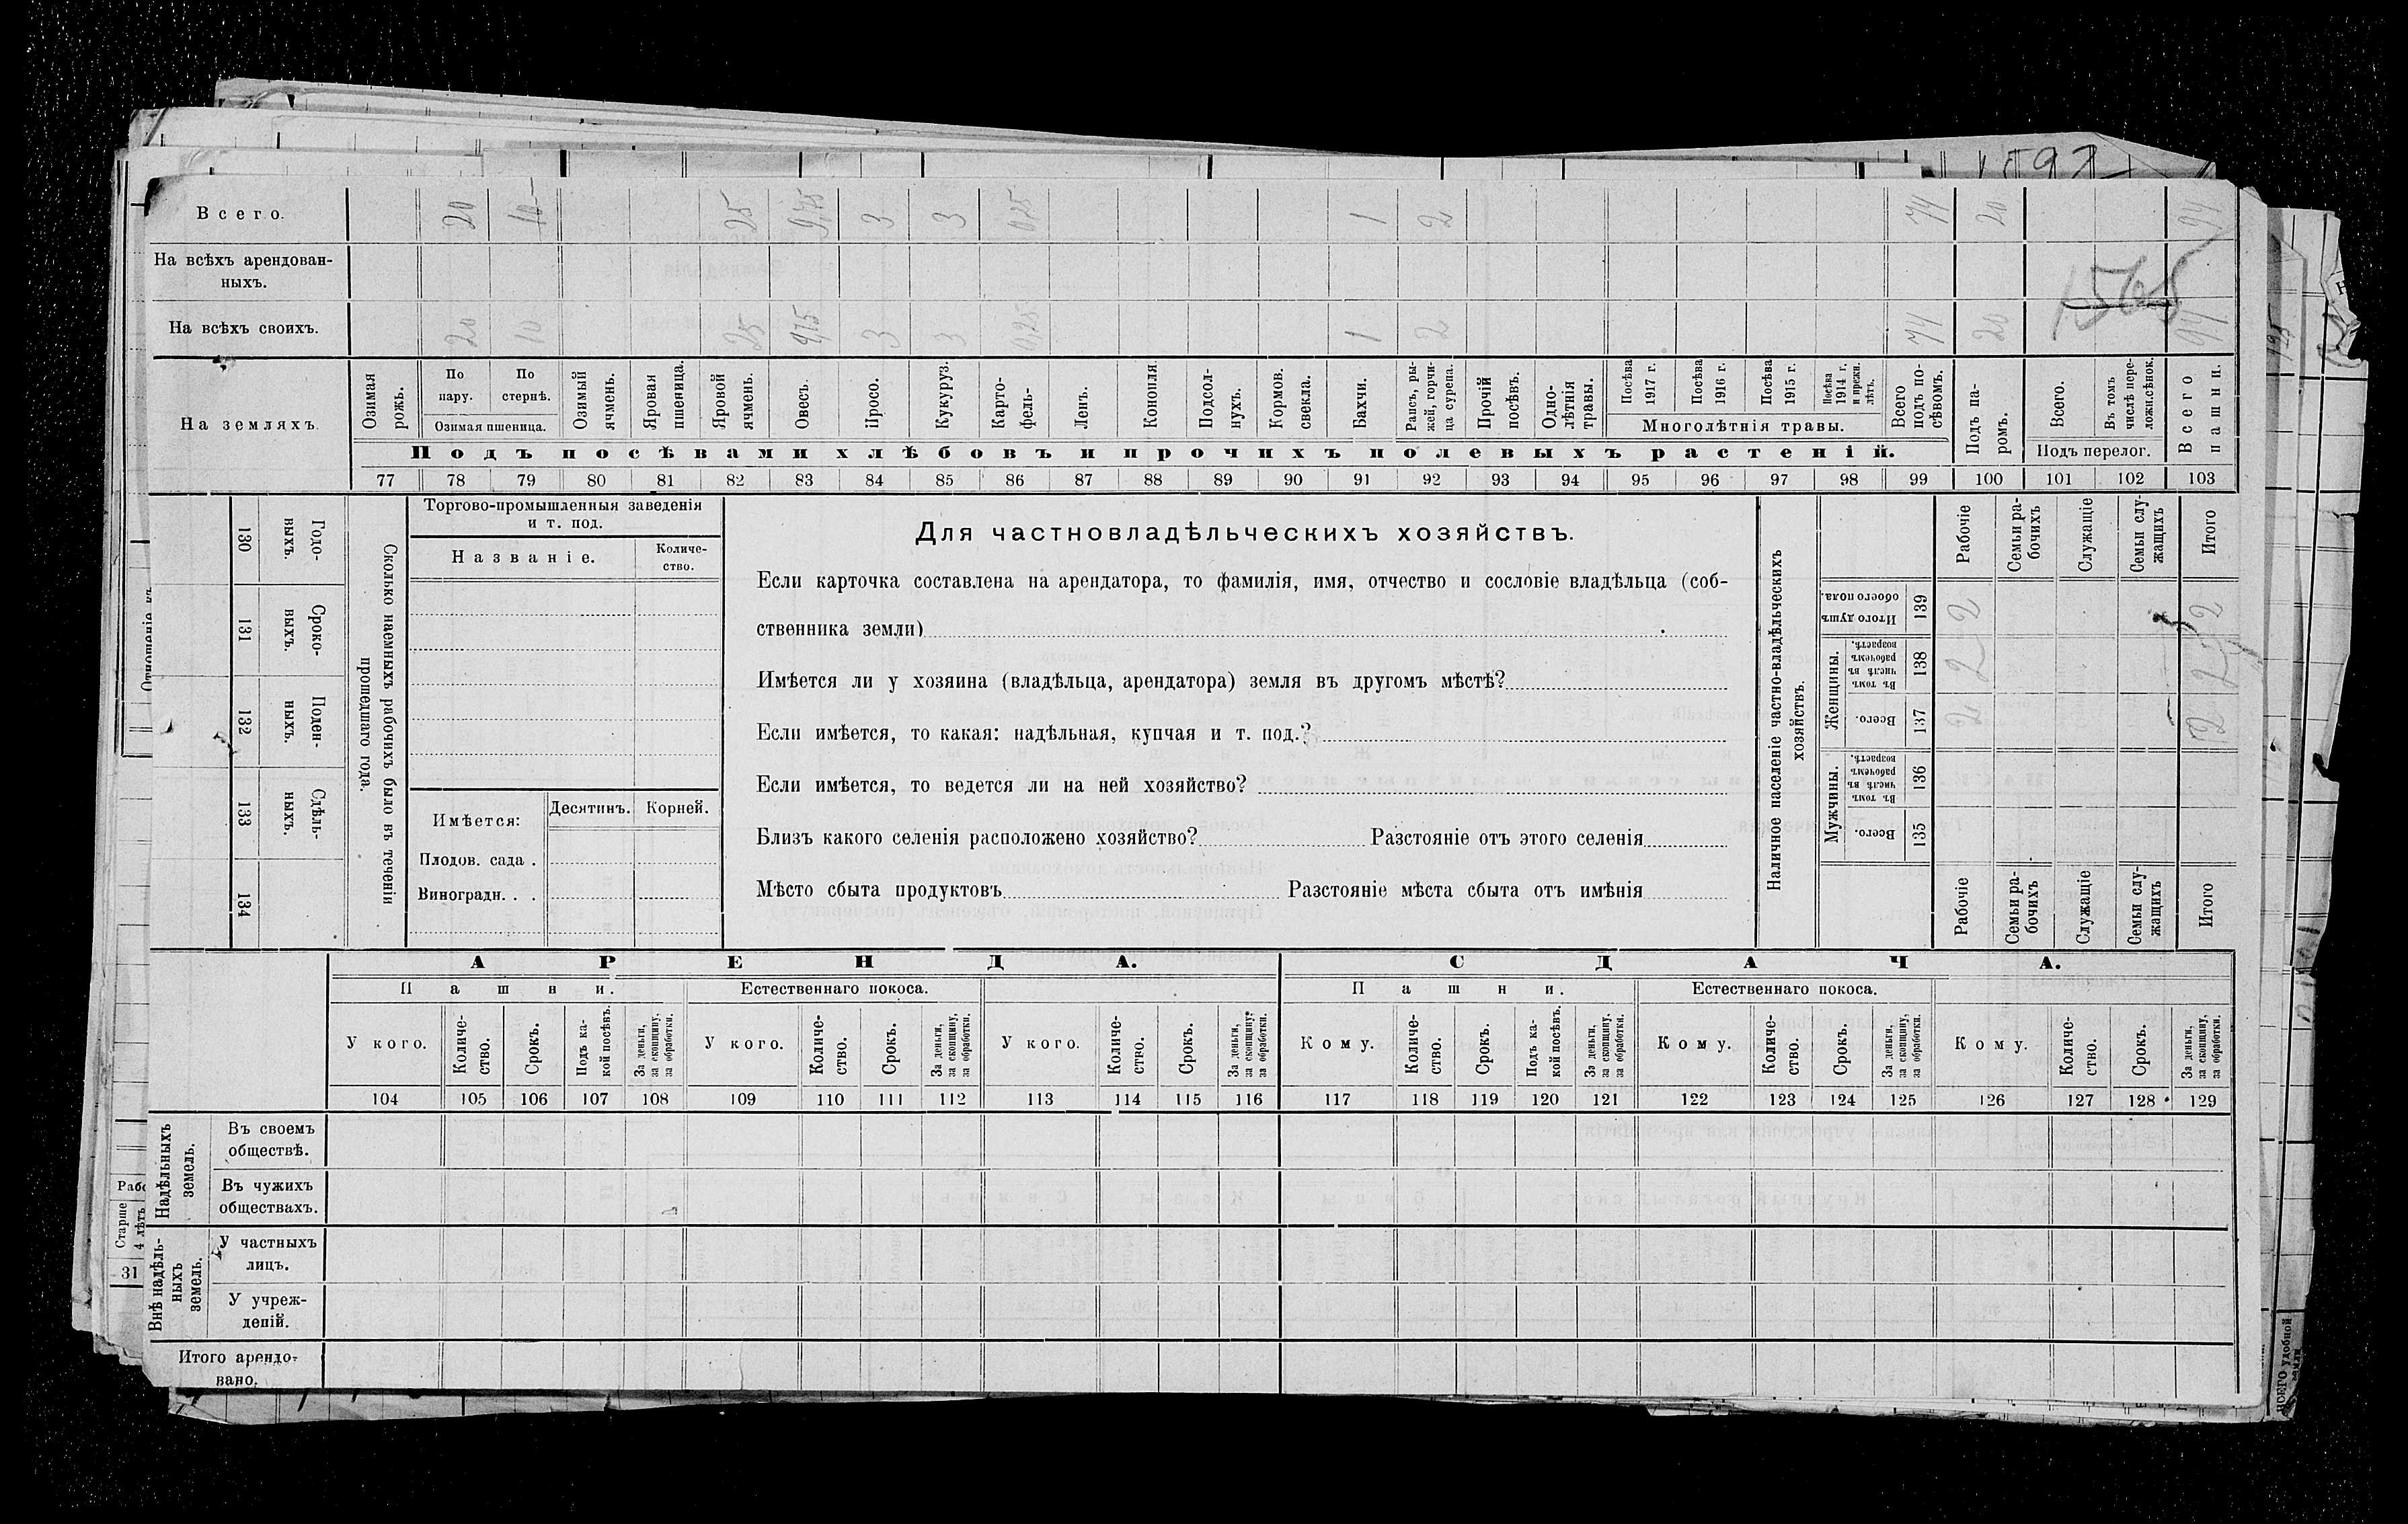 1592
Всего. 20 10 25 9,75 3 3 0,25 1 2 74 20 94
На всѣхъ арендован-
ныхъ.
1565
На всѣхъ своихъ. 20 10 25 9,75 3 3 0,25 1 2 74 20 94
На земляхъ.
Озимая рожь.
По пару.
По стернѣ.
Озимая пшеница.
Озимый ячмень.
Яровая пшеница.
Яровой ячмень.
Овесъ.
Просо.
Кукуруз.
Карто-
фель-
Ленъ.
Конопля.
Подсол-
нухъ.
Кормов. свекла.
Бахчи.
Рапсъ, ры-
жей, горчи-
ца сурепа.
Прочій посѣвъ.
Одно-
лѣтнія травы.
Посѣва 1917 г.
Посѣва 1916 г.
Посѣва 1915 г.
Посѣва 1914 г. и прежн. лѣтъ.
Многолѣтнія травы.
Всего подъ по-
сѣвомъ.
Подъ па-
ромъ.
Всего.
Въ томъ числѣ пере-
ложн.сѣнок.
Подъ перелог.
Всего пашни.
Подъ посѣвами хлѣбовъ и прочихъ полевыхъ растеній.
77 78 79 80 81 82 83 84 85 86 87 88 89 90 91 92 93 94 95 96 97 98 99 100 101 102 103
130 Годо-
выхъ.
131 Сроко-
выхъ.
132 Поден-
ныхъ.
133 Сдѣль-
ныхъ.
134
Сколько наемныхъ рабочихъ было въ теченіи
прошедшаго года.
Торгово-промышленныя заведенія
и т. под.
Названіе.
Количе-
ство.
Имѣется: Десятинъ. Корней.
Плодов. сада .
Виноградн. . .
Для частновладѣльческихъ хозяйствъ.
Если карточка составлена на арендатора, то фамилія, имя, отчество и сословіе владѣльца (соб-
ственника земли)
Имѣется ли у хозяина (владѣльца, арендатора) земля въ другомъ мѣстѣ?
Если имѣется, то какая: надѣльная, купчая и т. под.?
Если имѣется, то ведется ли на ней хозяйство?
Близъ какого селенія расположено хозяйство? Разстояніе отъ этого селенія
Мѣсто сбыта продуктовъ Разстояніе мѣста сбыта отъ имѣнія
Наличное населеніе частно-владѣльческихъ
хозяйствъ.
Рабочіе
Семьи ра-
бочихъ
Служащіе
Семьи слу-
жащихъ
Итого
Итого душъ обоего пола. 139 2 2
Женщины.
Въ томъ числѣ въ рабочемъ возрастѣ. 138 2 2
Всего. 137 2 2
Мужчины.
Въ томъ числѣ въ рабочемъ возрастѣ. 136
Всего. 135
Рабочіе
Семьи ра-
бочихъ
Служащіе
Семьи слу-
жащихъ
Итого
АРЕНДА. СДАЧА.
Пашни. Естественнаго покоса. Пашни. Естественнаго покоса.
У кого.
Количе-
ство.
Срокъ.
Подъ ка-
кой посѣвъ.
За деньги, за скопщину, за обработки.
У кого.
Количе-
ство.
Срокъ.
За деньги, за скопщину, за обработки.
У кого.
Количе-
ство.
Срокъ.
За деньги, за скопщину, за обработки.
Кому.
Количе-
ство.
Срокъ.
Подъ ка-
кой посѣвъ.
За деньги, за скопщину, за обработки.
Кому.
Количе-
ство.
Срокъ.
За деньги, за скопщину, за обработки.
Кому.
Количе-
ство.
Срокъ.
За деньги, за скопщину, за обработки.
104 105 106 107 108 109 110 111 112 113 114 115 116 117 118 119 120 121 122 123 124 125 126 127 128 129
Надѣльныхъ земель.
Въ своемъ
обществѣ.
Въ чужихъ
обществахъ.
Внѣ надѣль-
ныхъ земель.
У частныхъ
лицъ.
У учреж-
деній.
Итого арендо-
вано.
Старше
4 лѣтъ
31